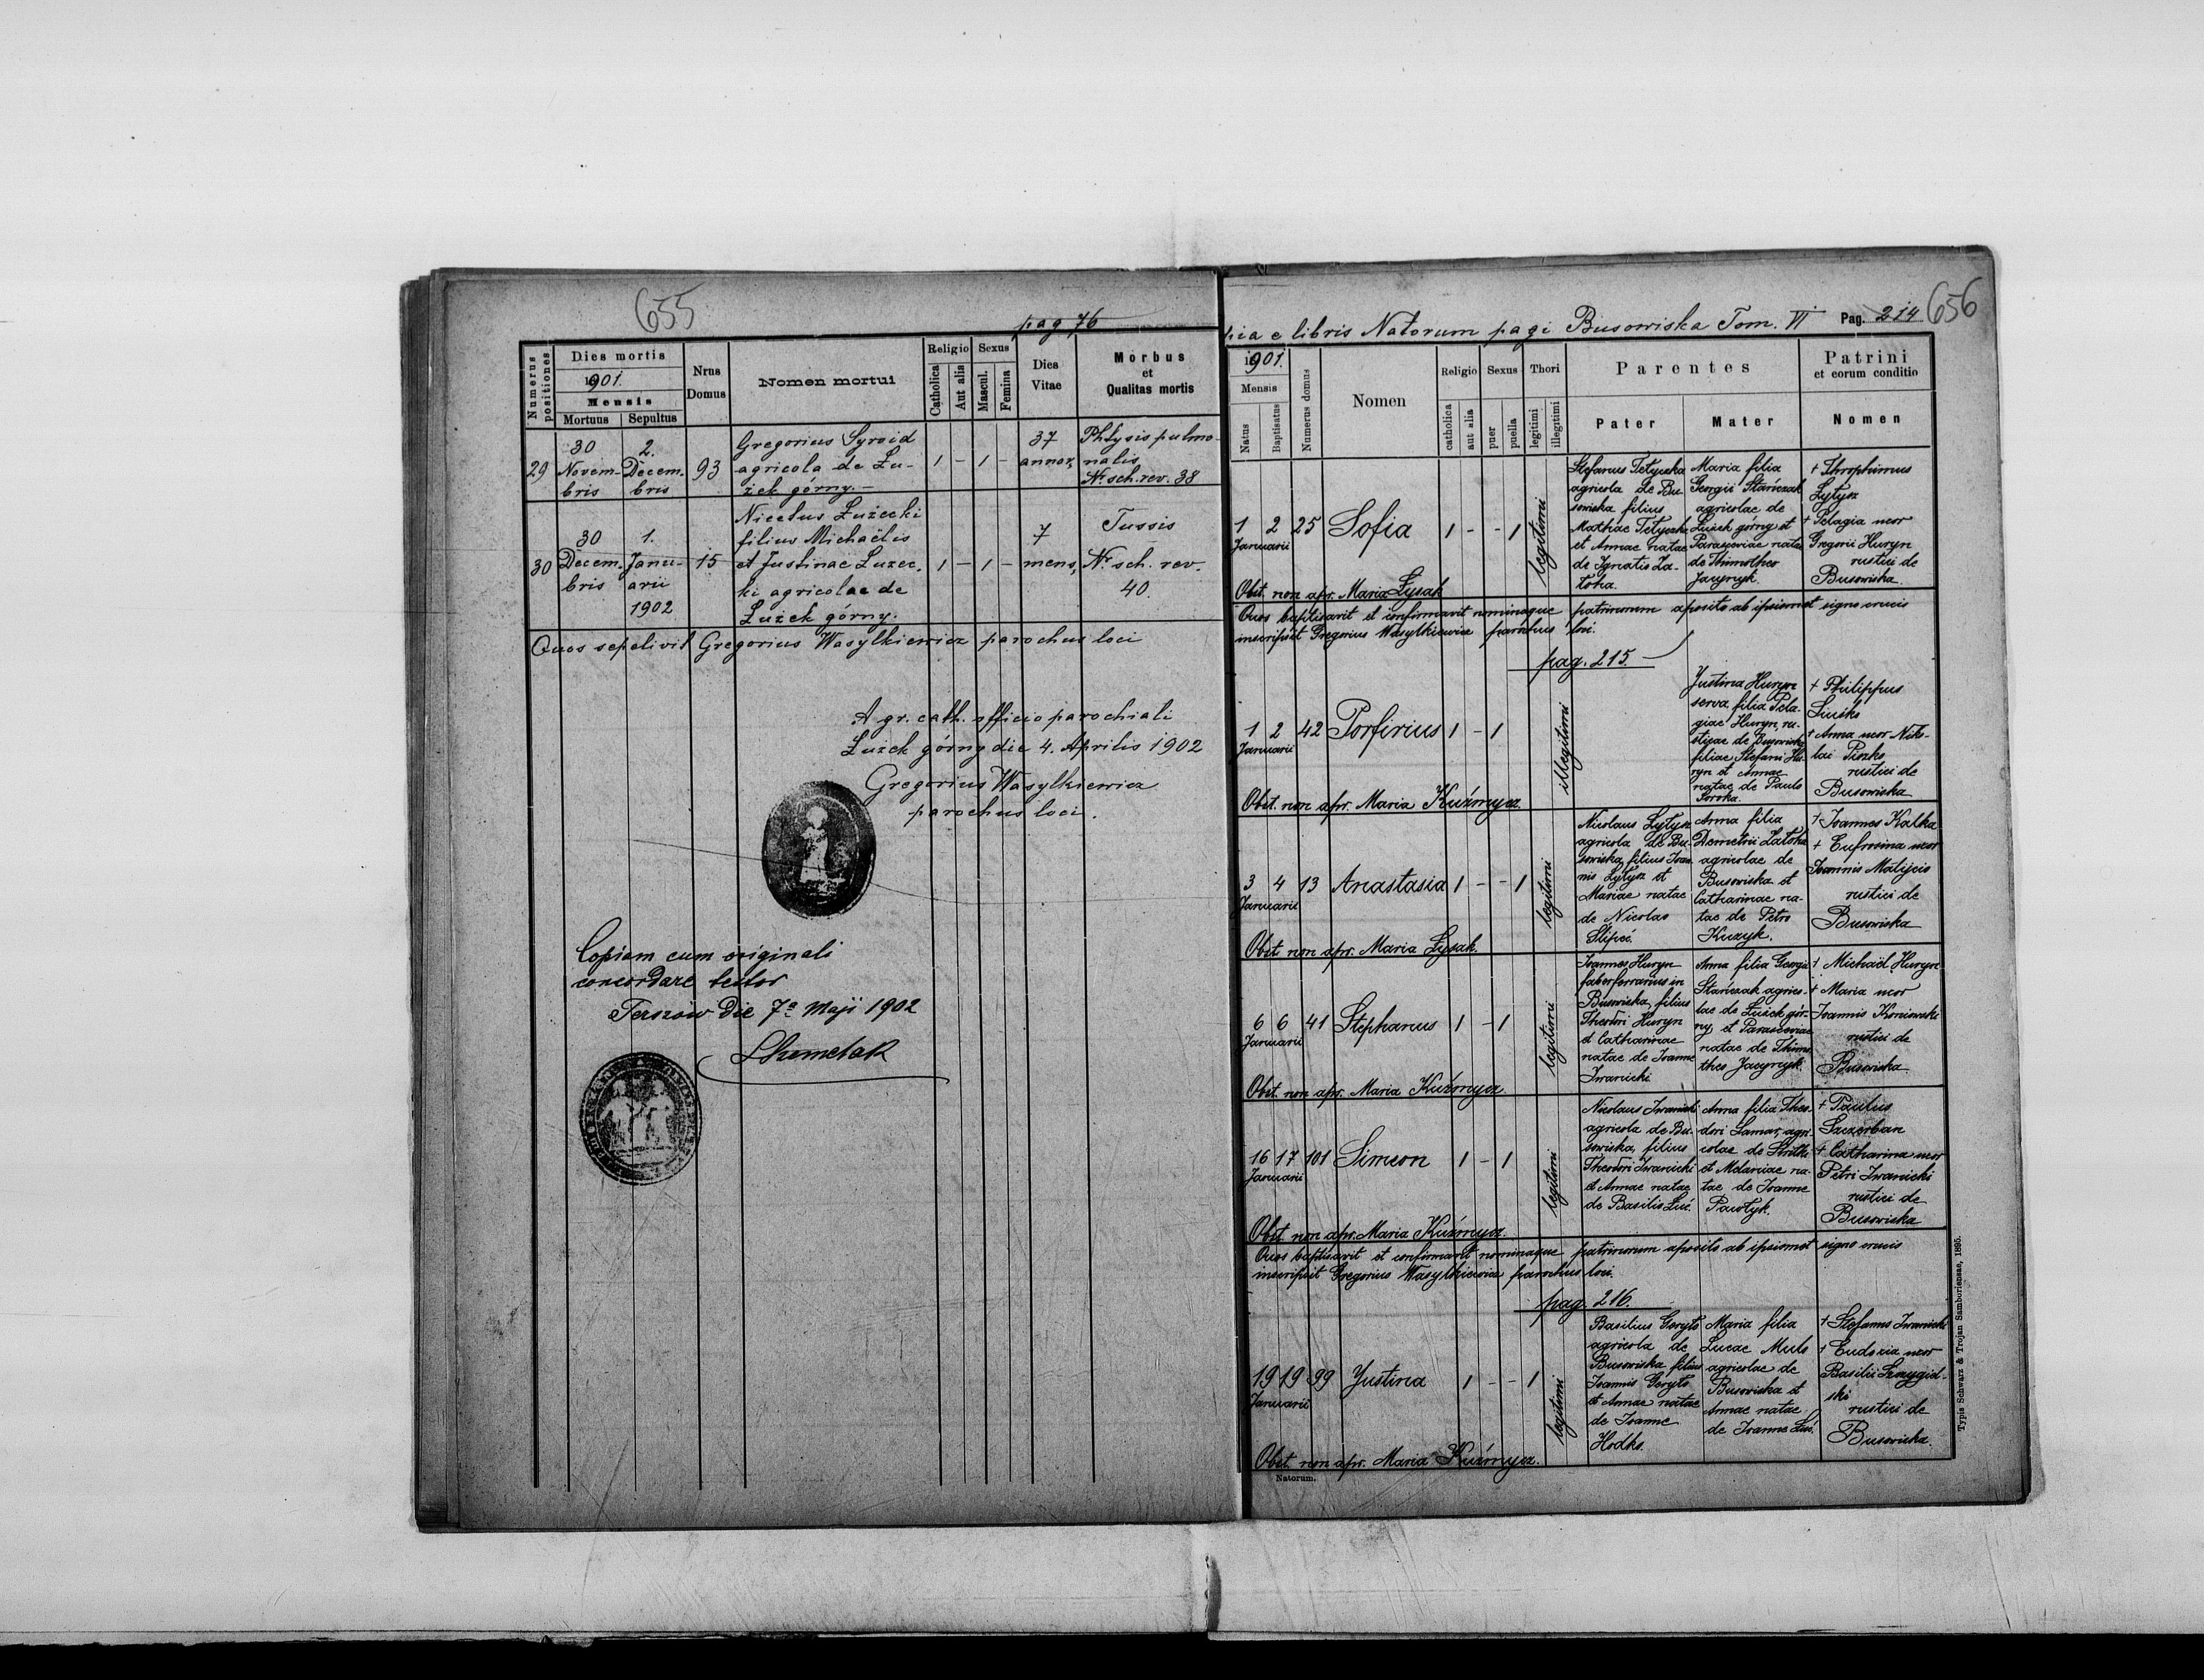 655
pag 76
Numerus positiones
Dies mortis
1901.
Mensis
Mortuus
Sepultus
Nrus Domus
Nomen mortui
Religio
Catholica
Aut alia
Sexus
Mascul.
Femina
Dies Vitae
Morbus
et
Qualitas mortis
29
30 Novem-
bris
2. Decem-
bris
93
Gregorius Syroid
agricola de Łu-
żek górny.-
1 - 1 -
37
annor,
Phtysis pulmo-
nalis
Nr sch. rev. 38
30
30
Decem-
bris
1.
Janu-
arii
1902
15
Nicetus Łużecki
filius Michaëlis
et Justinae Łużec-
ki agricolae de
Łużek górny.
1 - 1 -
7
mens,
Tussis
Nr sch. rev.
40.
Quos sepelivit Gregorius Wasylkiewicz parochus loci
A gr. cath. officio parochiali
Łużek górny die 4. Aprilis 1902
Gregorius Wasylkiewicz
parochus loci.
Copiam cum originali
concordare testor
Terszów die 7a Maji 1902
656
pia e libris Natorum pagi Busowiska Tom. VI Pag. 214
1901.
Mensis
Natus
Baptisatus
Numerus domus
Nomen
Religio
catholica
aut alia
Sexus
puer
puella
Thori
legitimi
illegitimi
Parentes
Pater
Mater
Patrini
et eorum conditio
Nomen
1 2 25 Sofia 1 - - 1 legitimi
Januarii
Stefanus Tetyczka
agricola de Bu-
sowiska filius
Mathiae Tetyczka
et Annae natae
de Ignatio Za-
toka.
Maria filia
Georgii Stańczak
agricolae de
Łużek górny et
Parasceviae natae
de Thimotheo
Jacynyk.
+ Throphimus
Łytysz
+ Pelagia uxor
Gregorii Huryn
rustici de
Busowiska.
Obst. non apr. Maria Łysak
Quos baptisavit et confirmavit nominaque patrinorum aposito ab ipsismet signo crucis
inscripsit Gregorius Wasylkiewicz parochus loci.
pag. 215.
1 2 42 Porfirius 1 - 1 illegitimi
Januarii
Justina Huryn
serva filia Pela-
giae Huryn, ru-
sticae de Busowiska
filiae Stefani Hu-
ryn et Annae
natae de Paulo
Soroka.
+ Philippus
+ Anna uxor Niko-
lai
rustici de
Busowiska
Obst. non apr. Maria Kuźmycz
3 4 13 Anastasia 1 - - 1 legitimi
Januarii
Nicolaus Łytysz
agricola de Bu-
sowiska filius Joan-
nis Łytysz et
Mariae natae
de Nicolao
Anna filia
Demetrii Zatoka
agricolae de
Busowiska et
Catharinae na-
tae de Petro
Kuzyk.
+ Joannes Kalka
+ Eufrosina uxor
Joannis Matijcio
rustici de
Busowiska
Obst. non apr. Maria Łysak.
6 6 41 Stephanus 1 - 1 legitimi
Januarii
Joannes Huryn
faber ferrarius in
Busowiska, filius
Theodori Huryn
et Catharinae
natae de Joanne
Iwanicki
Anna filia Georgii
Stańczak agrico-
lae de Łużek gór-
ny et Parasceviae
natae de Thimo-
theo Jacynyk.
+ Michaël Huryn
+ Maria uxor
Joannis Koniowski
rustici de
Busowiska
Obst. non apr. Maria Kuźmycz
16 17 101 Simeon 1 - 1 legitimi
Januarii
Nicolaus Iwanicki
agricola de Bu-
sowiska, filius
Theodori Iwanicki
et Annae natae
de Basilio Łuć.
Anna filia Theo-
dori Samar, agri-
colae de Strilki
et Melaniae na-
tae de Joanne
Pawłyk.
+ Paulus
Szczerban
+ Catharina uxor
Petri Iwanicki
rustici de
Busowiska
Obst. non apr. Maria Kuźmycz.
Quos baptisavit et confirmavit nominaque patrinorum aposito ab ipsismet signo crucis
inscripsit Gregorius Wasylkiewicz parochus loci.
pag. 216.
19 19 99 Justina 1 - - 1 legitimi
Januarii
Basilius Goryto
agricola de
Busowiska filius
Joannis Goryto
et Annae natae
de Joanne
Hodko.
Maria filia
Lucae Mulo
agricolae de
Busowiska et
Annae natae
de Joanne Łuć.
+ Stefanus Iwanicki
+ Eudoxia uxor
Basilii
rustici de
Busowiska.
Obst. non apr. Maria Kuźmycz.
Natorum.
Typis Schwarz & Trojan Samboriensae, 1895.